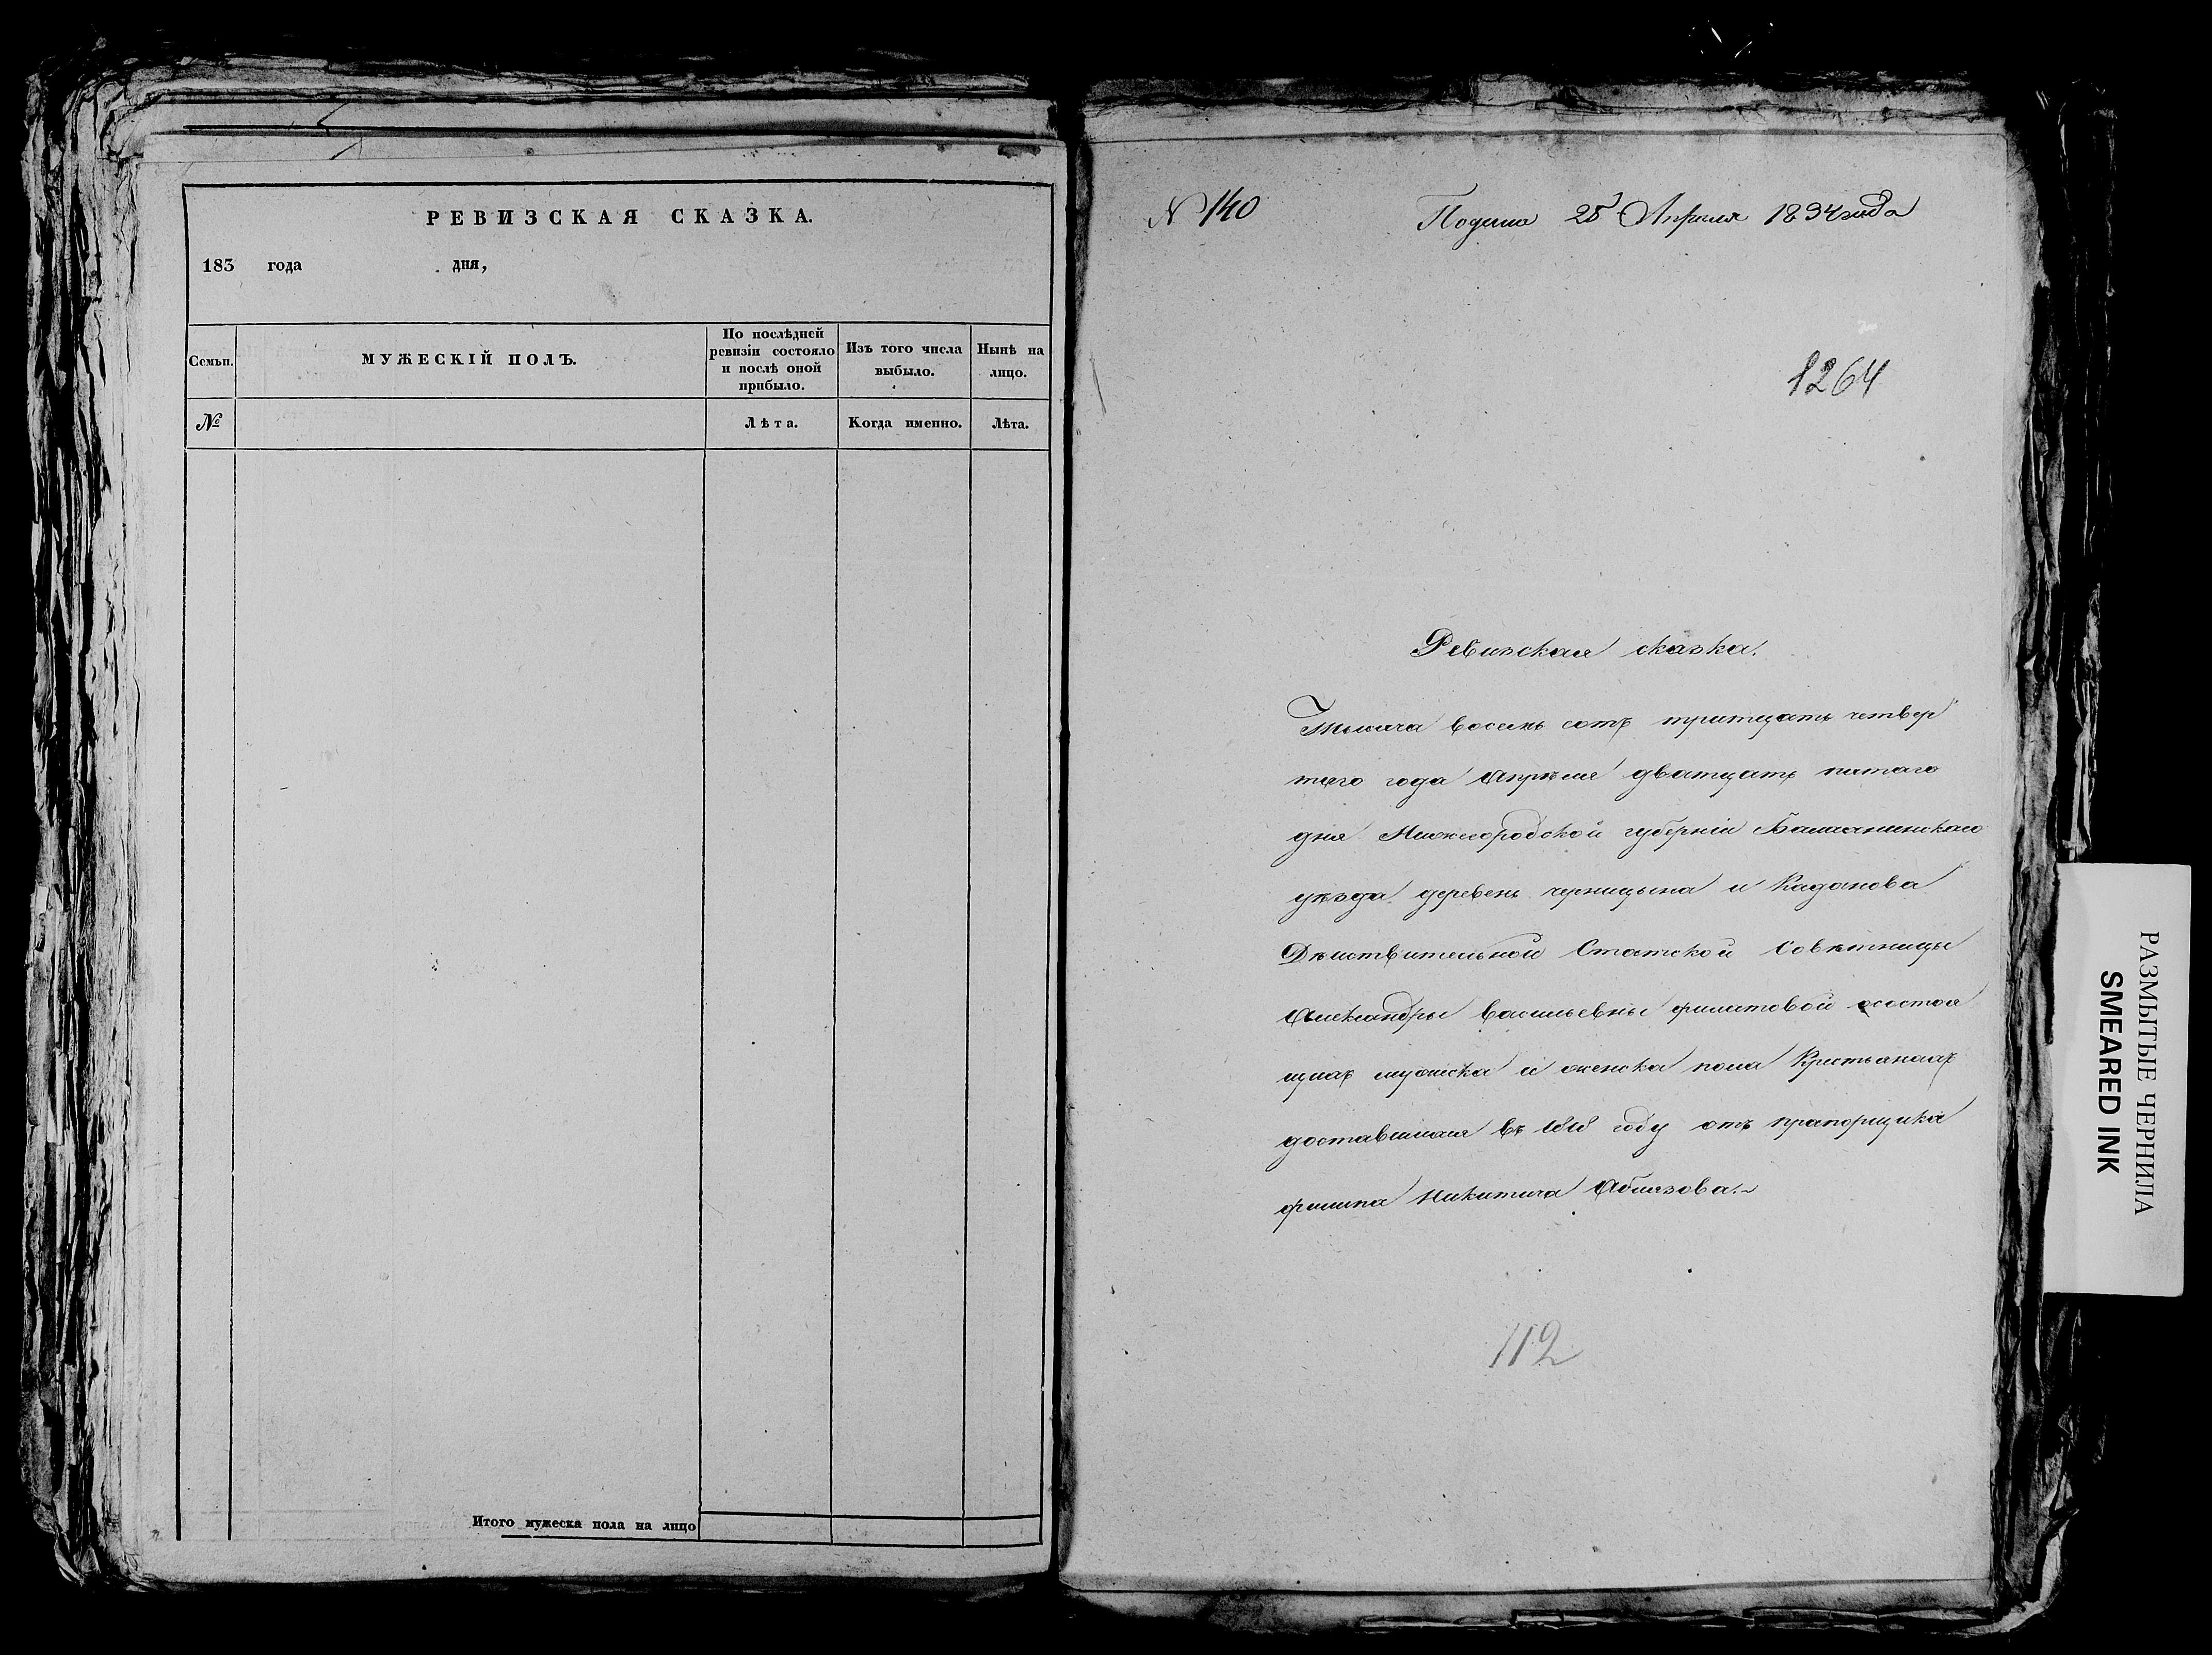 РЕВИЗСКАЯ СКАЗКА.
183 года дня,
Семьи.
МУЖЕСКІЙ ПОЛЪ.
По послѣдней
ревизіи состояло
и послѣ оной
прибыло.
Изъ того числа
выбыло.
Нынѣ на
лицо.
№
Лѣта.
Когда именно.
Лѣта.
Итого мужеска пола на лицо
N 140
Подана 25 Апреля 1834 года
1264
Ревизская сказка.
Тысяча восемь сотъ тритцать четвер
таго года Апрѣля дватцать пятаго
дня Нижегородской губерніи Балахнинскаго
уѣзда деревень черницына и Каданова
Дѣиствительной Статской Совѣтницы
Александры васильевны филатовой о состоя
щихъ мужеска и женска пола Крестьянахъ
доставшихся въ 1818 году отъ прапорщика
филипа Никитича Аблязова.
112
РАЗМЫТЫЕ ЧЕРНИЛА
SMEARED INK